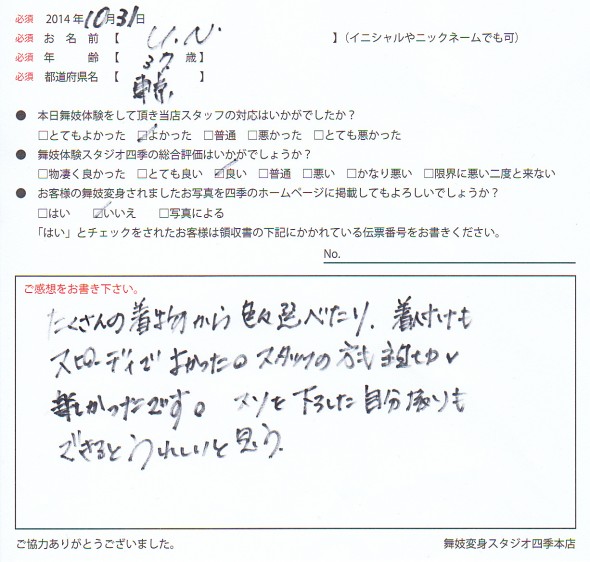 必須 2014年10月31日
必須 お名前【 U.N. 】(イニシャルやニックネームでも可)
必須 年 齢【 37 歳】
必須 都道府県名【 東京 】
● 本日舞妓体験をして頂き当店スタッフの対応はいかがでしたか?
□とてもよかった ☑よかった □普通 □悪かった □とても悪かった
● 舞妓体験スタジオ四季の総合評価はいかがでしょうか?
□物凄く良かった □とても良い ☑良い □普通 □悪い □かなり悪い □限界に悪い二度と来ない
● お客様の舞妓変身されましたお写真を四季のホームページに掲載してもよろしいでしょうか?
□はい ☑いいえ □写真による
「はい」とチェックをされたお客様は領収書の下記にかかれている伝票番号をお書きください。
No.
ご感想をお書き下さい。
たくさんの着物から色々選べたり、着付けも
スピーディでよかった。スタッフの方も
楽しかったです。スソを下ろした自分撮りも
できるとうれしいと思う.
ご協力ありがとうございました。
舞妓変身スタジオ四季本店